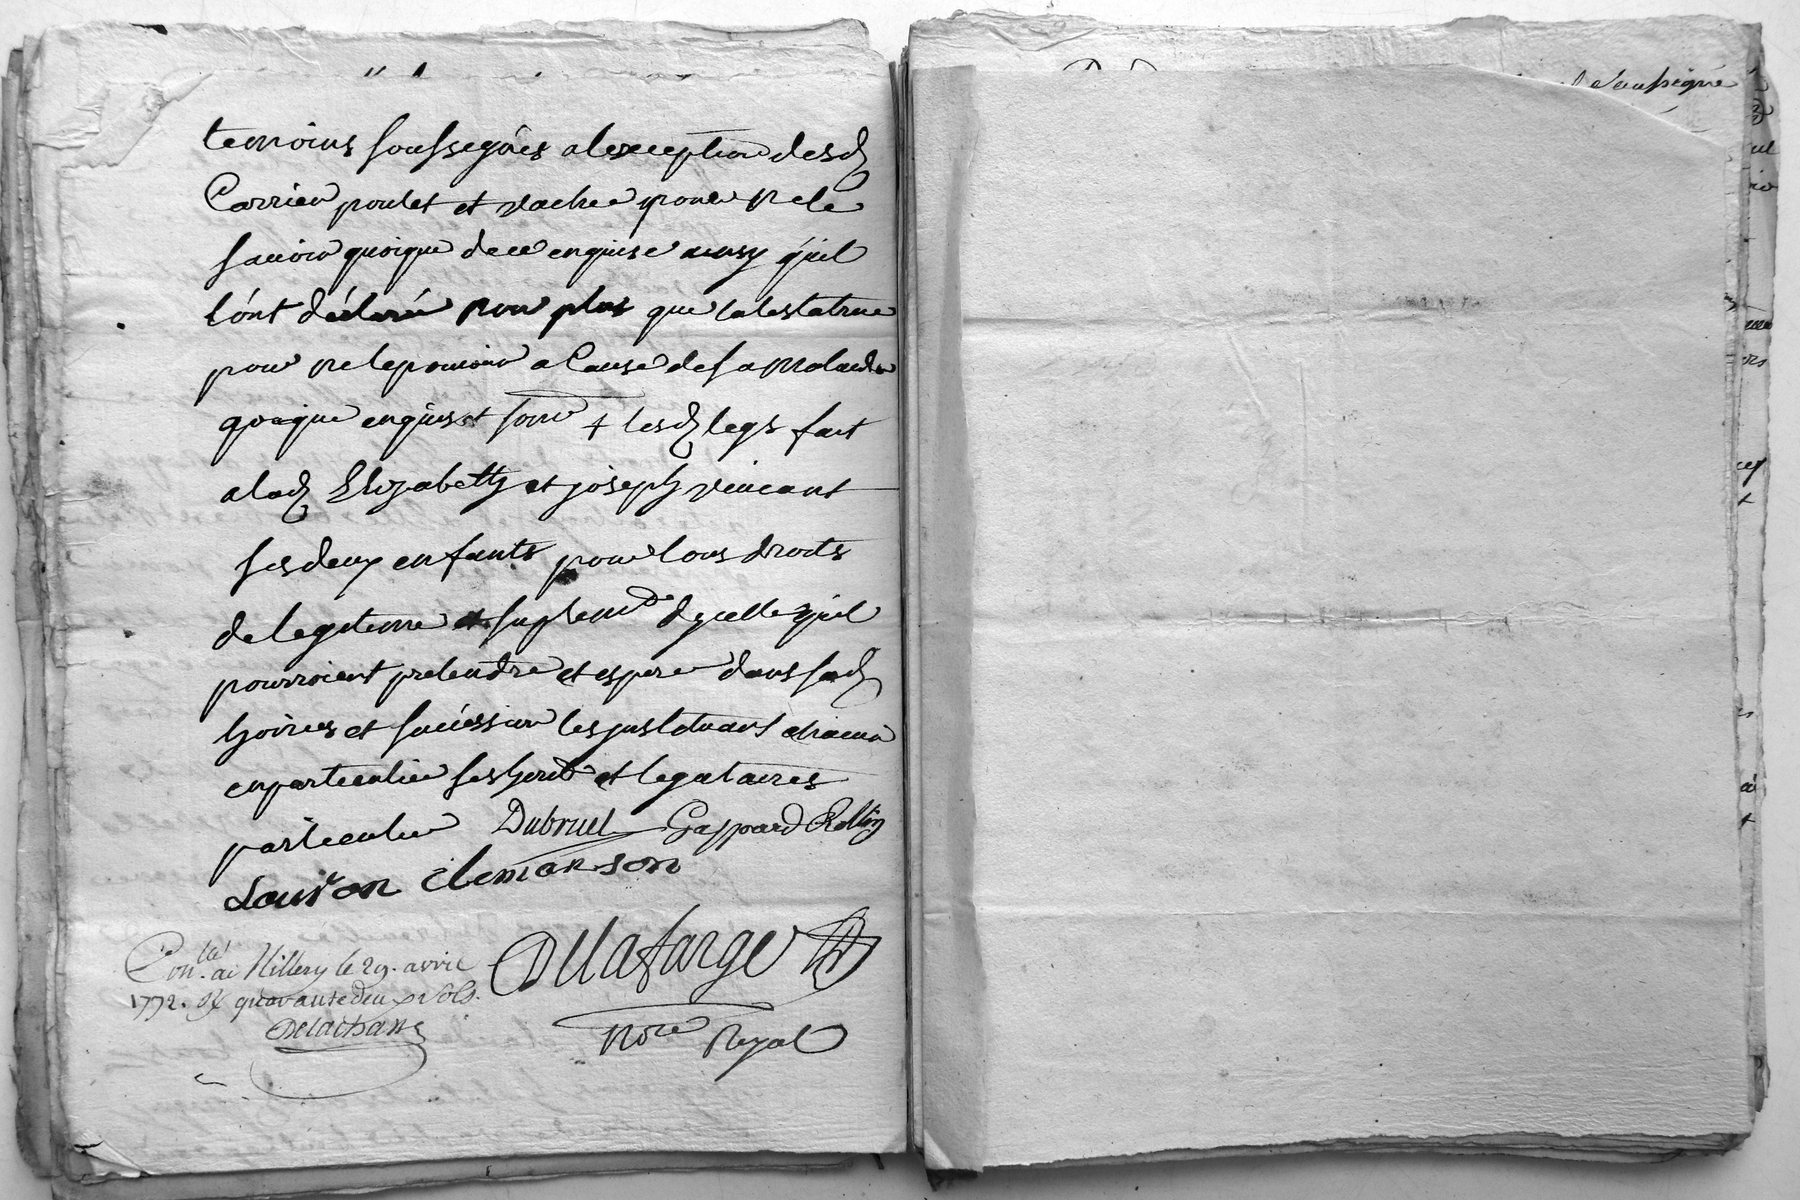 temoins soussegnés alexception desd
Carrier poulet et vache pour ne le
savoir quoique de ce enquise ainsy quil
lont déclaré non plus que la testatrice
pour ne le pouvoir a Cause de sa maladie
quoique enquise et somé + lesd legs fait
a lad Elizabeth et joseph vincant
ses deux enfants pour tous droits
de legiteme et suplemt dycelle quil
pourroient pretendre et espere dans sad
hoiries et suicession les justetuant chacun
en particulier ses herité et legataires
particulier Dubruel Gaspard
Louison clemanson
Conlé. a Millery le 29. avril
1772. R quarante deux sols.
Delachasse
Dellafarge
Nore Royal